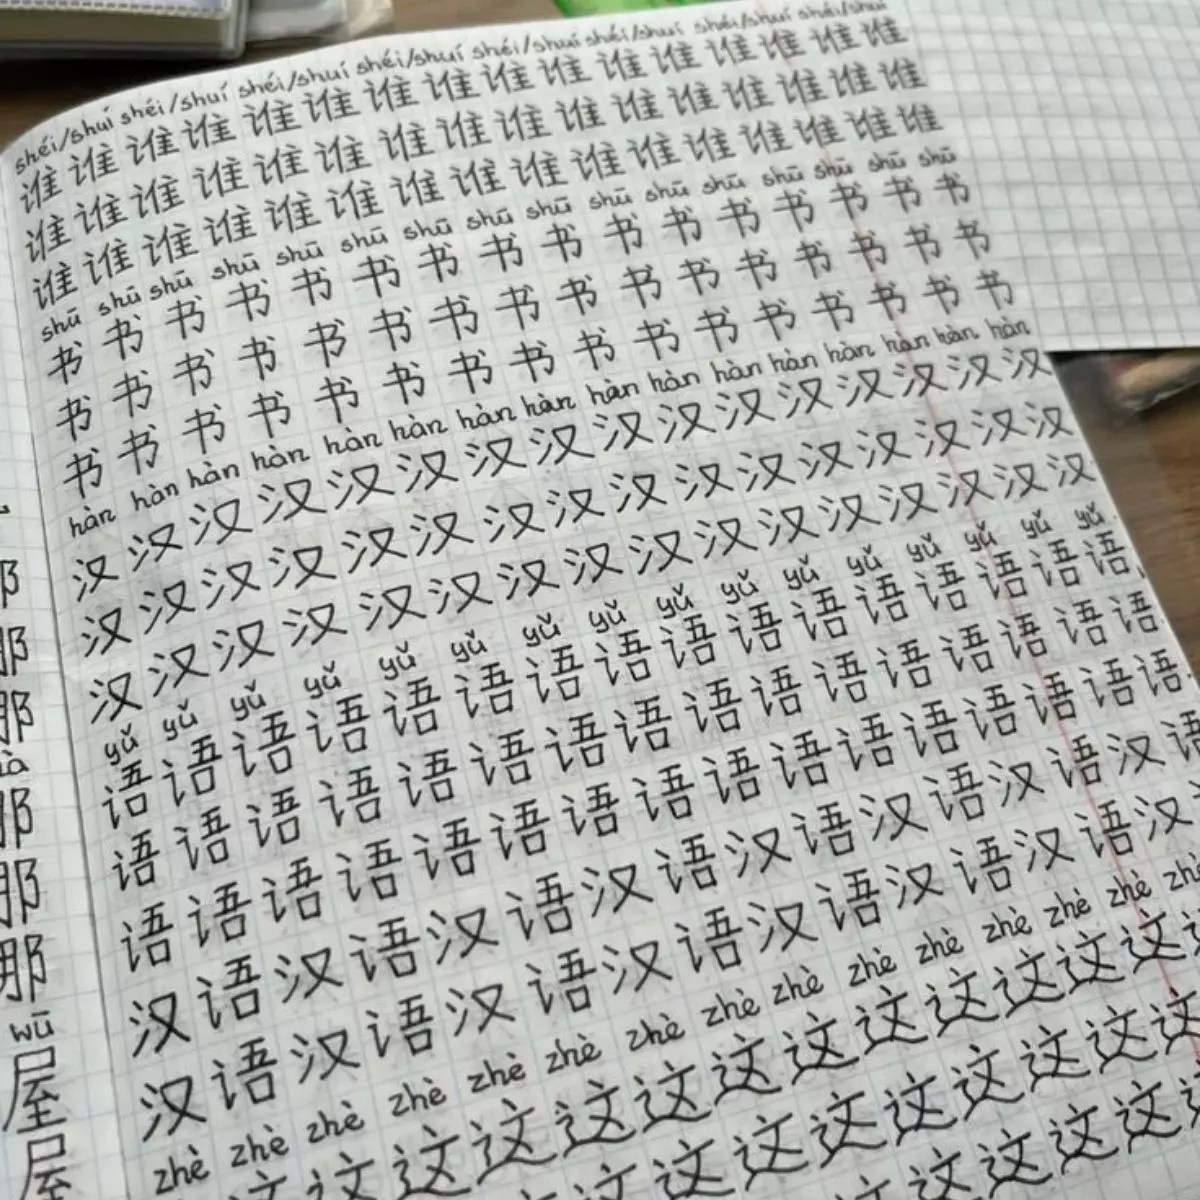 那
那
那
那
那
那
wū
屋
屋
shéi/shuí shéi/shuí shéi/shuí shéi/shuí shéi/shuí shéi/shuí shéi/shuí shéi/shuí
谁谁谁谁谁谁谁谁谁谁谁谁谁谁谁谁
谁谁谁谁谁谁谁谁谁谁谁谁谁谁谁谁
谁谁谁谁谁谁谁谁谁谁谁谁谁谁谁谁
shū shū shū shū shū shū shū shū shū shū shū shū shū shū shū shū
书书书书书书书书书书书书书书书书
书书书书书书书书书书书书书书书书
书书书书书书书书书书书书书书书书
hàn hàn hàn hàn hàn hàn hàn hàn hàn hàn hàn hàn hàn hàn hàn hàn
汉汉汉汉汉汉汉汉汉汉汉汉汉汉汉汉
汉汉汉汉汉汉汉汉汉汉汉汉汉汉汉汉
汉汉汉汉汉汉汉汉汉汉汉汉汉汉汉汉
yǔ yǔ yǔ yǔ yǔ yǔ yǔ yǔ yǔ yǔ yǔ yǔ yǔ yǔ yǔ yǔ
语语语语语语语语语语语语语语语语
语语语语语语语语语语语语语语语语
语语语语语语语语语语语语语语语语
汉语汉语汉语汉语汉语汉语汉语汉语
汉语汉语汉语汉语汉语汉语汉语汉
zhè zhè zhè zhè zhè zhè zhè zhè zhè zhè zhè zhè zhè zhè zhè
这这这这这这这这这这这这这
这这这这这这这这这这
这这这这